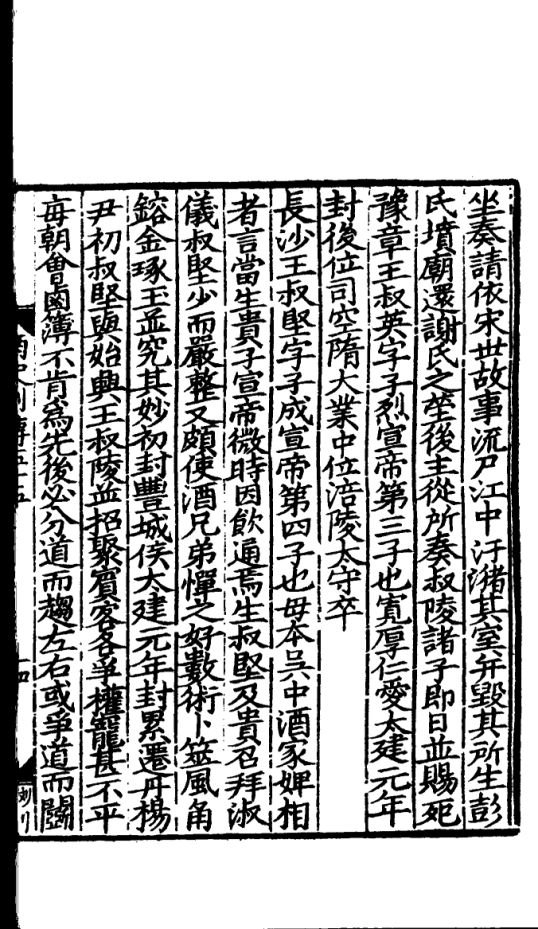 坐奏請依宋世故事流尸江中汙瀦其室并毀其所生彭
氏墳廟還謝氏之塋後主從所奏叔陵諸子即日並賜死
豫章王叔英字子烈宣帝第三子也寬厚仁愛太建元年
封後位司空隋大業中位涪陵太守卒
長沙王叔堅字子成宣帝第四子也母本吳中酒家婢相
者言當生貴子宣帝微時因飲通焉生叔堅及貴召拜淑
儀叔堅少而嚴整又頗使酒兄弟憚之好數術卜筮風角
鎔金琢玉並究其妙初封豐城侯太建元年封累遷丹楊
尹初叔堅與始興王叔陵並招聚賓客各爭權寵甚不平
每朝會鹵簿不肯爲先後必分道而趨左右或爭道而鬬